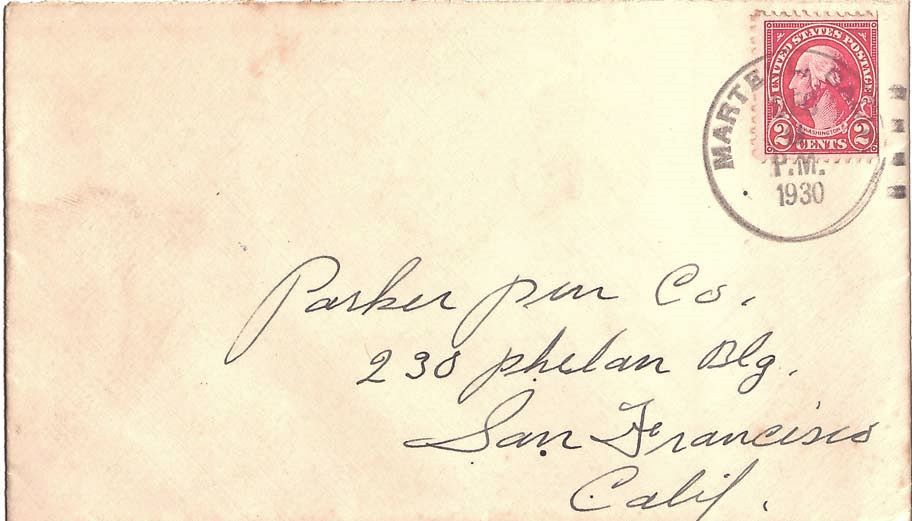 UNITED STATES POSTAGE
WASHINGTON
2 CENTS 2
P.M.
1930
Parker pen Co.
230 phelan Blg.
San Francisco
Calif.